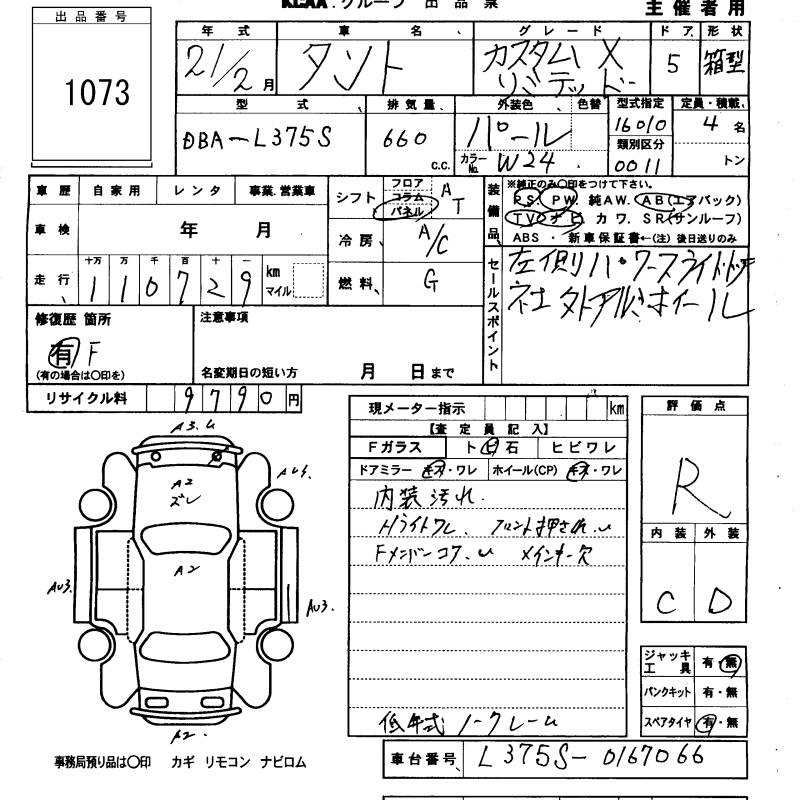 KCAA.グループ 出品票
主催者用
出品番号
1073
年式 車名 グレード ドア 形状
21/2月 タント カスタムX リミテッド 5 箱型
型式 排気量 外装色 色替 型式指定 定員・積載
DBA-L375S 660 c.c. パール 16010 4名
カラーNo. W24 類別区分 0011 トン
車歴 自家用 レンタ 事業.営業車
車検 年 月
走行 十万 万 千 百 十 一 km マイル
110729
シフト フロア コラム パネル AT
冷房 A/C
燃料 G
装備品
※純正のみ○印をつけて下さい。
PS PW 純AW. AB(エアバック)
TV ナビ カワ. SR(サンルーフ)
ABS ・ 新車保証書←(注) 後日送りのみ
セールスポイント
左側パワースライドドア
社外アルミホイール
修復歴 箇所
有 F
(有の場合は○印を)
注意事項
名変期日の短い方 月 日まで
リサイクル料 9790円
現メーター指示 km
【査定員記入】
Fガラス ト ヒ 石 ヒビワレ
ドアミラー キズ・ワレ ホイール(CP) キズ・ワレ
内装汚れ.
Hライトワレ. フロント押され.u
Fメンバーコワ.u メインキー欠
低年式 ノークレーム
評価点
R
内装 外装
C D
A3.u
A2
ズレ
AU4.
A2
AU3.
AU3.
A2.
ジャッキ工具 有・無
パンクキット 有・無
スペアタイヤ 有・無
事務局預り品は○印 カギ リモコン ナビロム
車台番号 L375S-0167066